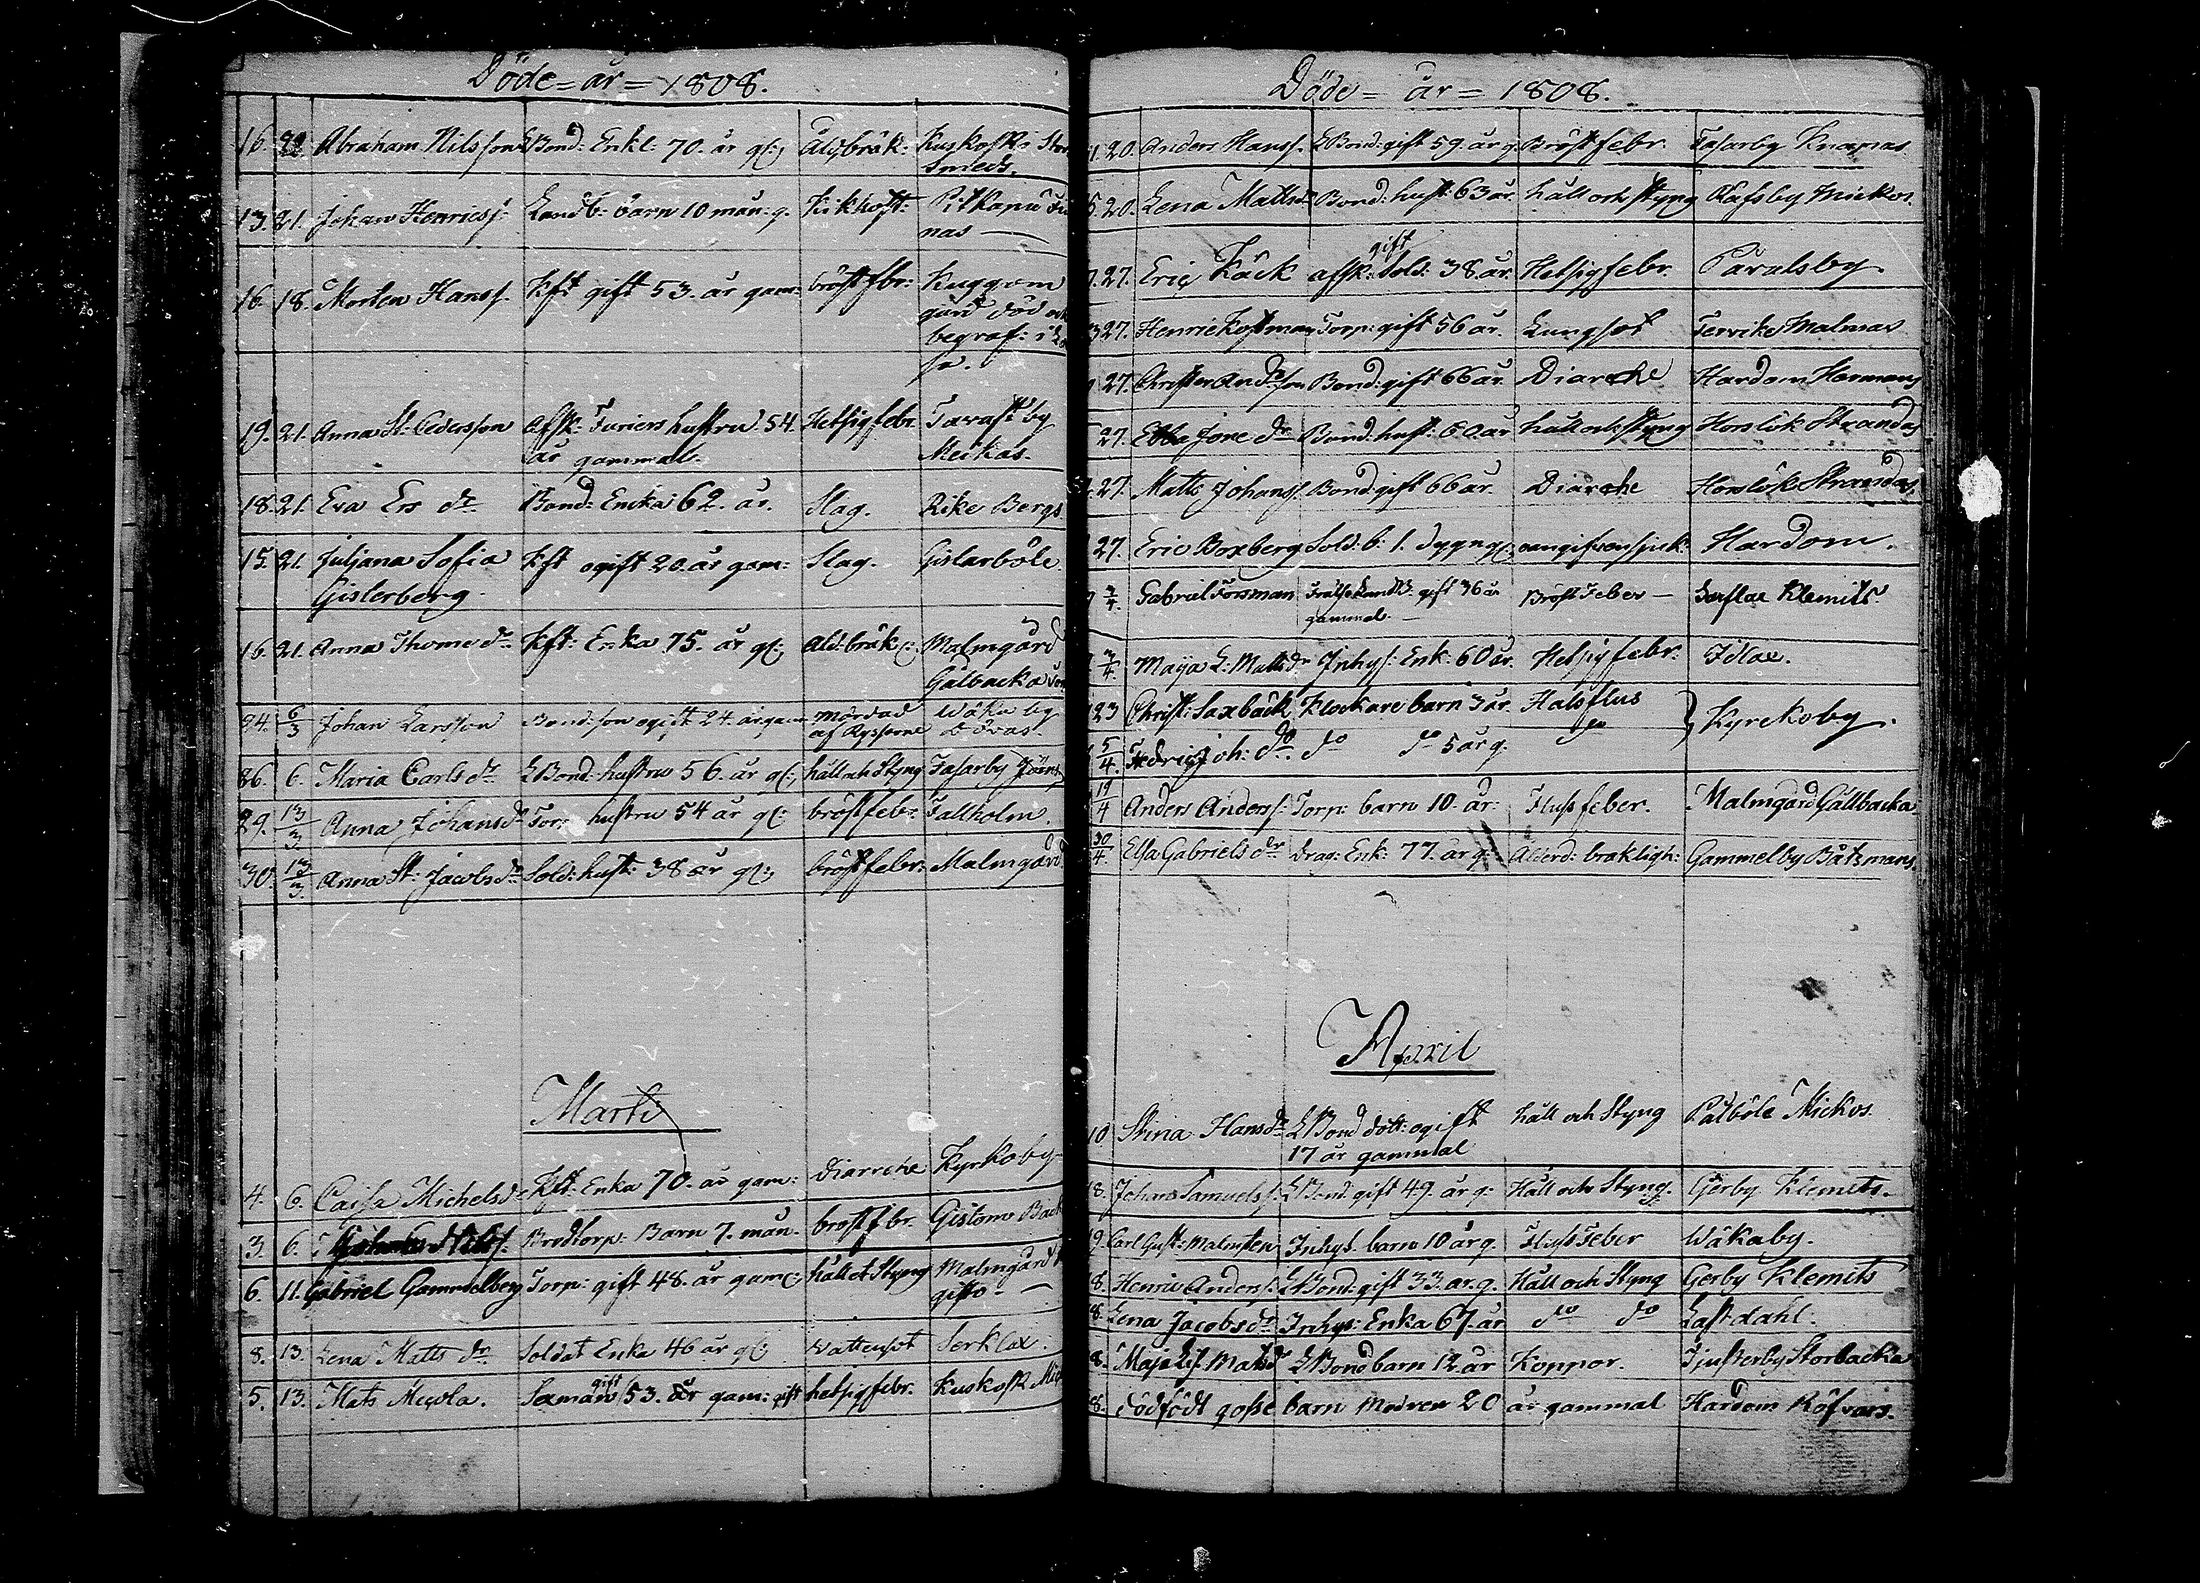 Döde = år = 1808.
16. Abraham Nilsson LBond: Enkl: 70. år gl: Åldbräk: Kuskosk: Stor
Smeds.
13. 21. Johan Henricss: Landb: barn 10 mån: g. Kikhost: Pitkapä
nas —
16. 18. Morten Hanss. Kft gift 53. år gam: bröstfbr: Kuggom
gård död och
begraf: i
sa.
19. 21. Anna St: Cederson Afsk: Furiers hustru 54. Hetsigfebr. Tavastby
år gammal. Meikas.
18. 21. Eva Ers dr Bond: Encka 62. år. Slag. Rike Bergs
15. 21. Juljana Sofia Kft ogift 20. år gam: Slag. Gislarböle.
Gislerberg.
16. 21. Anna Thome dr Kft: Enka 75. år gl: Ald: bräk: Malmgård
Galbacka
24. 6/3 Johan Larsson Bond: son ogift 24. år gam mördad Wåka by
af Ryssarne
26. 6. Maria Carls dr LBond: hustru 56. år gl: håll och Styng Tasarby
29. 13/3 Anna Johans dr Torp: hustru 54 år gl: bröstfebr: Tallholm.
30. 13/3. Anna St: Jacobs dr Sold: hust: 38 år gl: bröstfebr: Malmgård
Marti
4. 6. Caisa Michels dr Kft: Enka 70. år gam: Diarrche Kyrkoby
3. 6. Brodtorp: Barn 7. mån. bröstfbr. Gislom Back
6. 11. Gabriel Gammelberg Torp: gift 48. år gam: håll et Styng Malmgård
8. 13. Lena Matts dr Soldat Enka 46 år gl: Wattusot Serklax.
gift
5. 13. Mats Micola. Soman 53. år gam: gift hetsigfebr. Kuskosk
Döde = år = 1808.
20. Anders Hanss. LBond: gift 59. år g. Bröstfebr. Tasarby Knapas.
20. Lena Matts dr Bond: hust: 63 år. håll och styng Räfsby Mickos.
gift
27. Eric Käck afsk: Sold: 38. år. Hetsigfebr. Paralsby.
27. Henric Kostman Torp: gift 56 år. Lungsot Tervike Malmas
27. Christer Andersson Bond: gift 66 år. Diarche Hardom Hermans
27. Ebba Jone dr Bond: hust: 60 år håll och styng Horslök Strandas
27. Matts Johanss. Bond: gift 66 år. Diarche Horslök Strandas
27. Eric Boxberg Sold: b: 1. dygn gl: oangifven sjuk: Hardom.
3/4. Gabriel Forsman Frälse LandB: gift 36 år Bröst Feber — Sarflax Klemits.
gammal. —
3/4. Maija L: Matts dr Inhys: Enk: 60 år. Hetsigfebr: Idlax.
23 Christ: Saxbäck Klockare barn 3 år. Halsflus Kyrckoby.
5/4. Fredric Joh: do. do do 5 år g. do
19/4 Anders Anderss: Torp: barn 10. år: Flussfeber. Malmgård Gällbacka
30/4. Elsa Gabriels dr Drag: Enk: 77. år g: Ålderd: bräkligh: Gammelby Båtsmans.
April
10 Stina Hans dr LBond dott: ogift håll och Styng Palböle Mickos.
17 år gammal
18. Johan Samuelss: LBond: gift 49. år g: Håll och Styng. Gerby Klemits.
19. Carl Gust: Malmsten Inhys. barn 10 år g. Fluss Feber Wåkaby.
8. Henric Anderss: LBond: gift 33. år. g. Håll och Styng Gerby Klemits
8. Lena Jacobs dr Inhys: Enka 67. år do do Lastdahl.
8. Maja Lis. Mats dr LBond barn 12. år Koppor. Tjusterby Storbacka
8. Dödfödt gosse barn Modren 20 år gammal Hardom Röfvars.